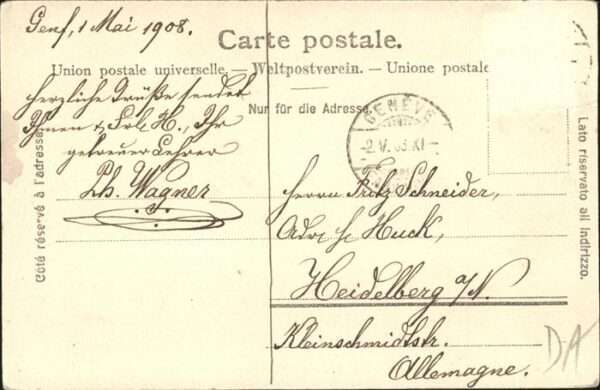 Genf, 1 Mai 1908.
Carte postale.
Union postale universelle. — Weltpostverein. — Unione postale
Nur für die Adresse.
herzliche Grüße sendet
Ihnen & Frl. H., Ihr
getreuer Lehrer
Ph. Wagner
GENÈV
2.V.08.XI
Côté réservé à l'adresse
Lato riservato all indirizzo.
Herrn Fritz Schneider,
Adr. H. Huck,
Heidelberg a/N.
Kleinschmidtstr.
Allemagne.
DA